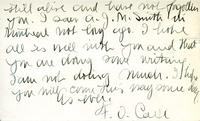 still alive and have not forgotten
you. I saw A. J. M. Smith in
not long ago. I hope
all is well with you and that
you are doing some writing.
I am not doing much. I hope
you will come this way some day.
As ever,
F. O. Call